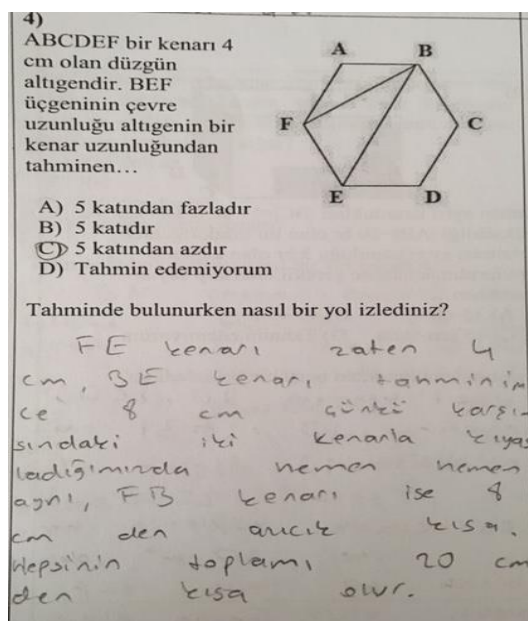 4)
ABCDEF bir kenarı 4
cm olan düzgün
altıgendir. BEF
üçgeninin çevre
uzunluğu altıgenin bir
kenar uzunluğundan
tahminen…
A B
F C
E D
A) 5 katından fazladır
B) 5 katıdır
C) 5 katından azdır
D) Tahmin edemiyorum
Tahminde bulunurken nasıl bir yol izlediniz?
FE kenarı zaten 4
cm, BE kenarı tahminim
ce 8 cm çünkü karşı
sındaki iki kenarla kıyas
ladığımızda hemen hemen
aynı, FB kenarı ise 8
cm den azıcık kısa.
Hepsinin toplamı 20 cm
den kısa olur.